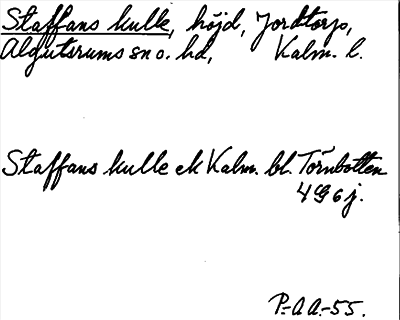 Staffans kulle, höjd, Jordtorp,
Algutsrums sn o. hd, Kalm. l.
Staffans kulle ek Kalm. bl. Törnbotten
4G6j.
P.-A A.-55.